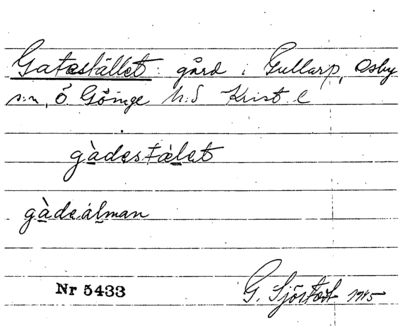 Gatestället gård i Gullarp, Osby
s:n, Ö Göinge h:d Krist. l
gàdestàlet
gàdeàlman
Nr 5433
G. Sjöstedt 1915